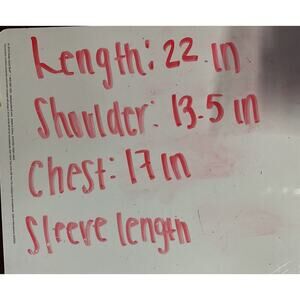 Length: 22 in
Shoulder: 13.5 in
Chest: 17 in
Sleeve length